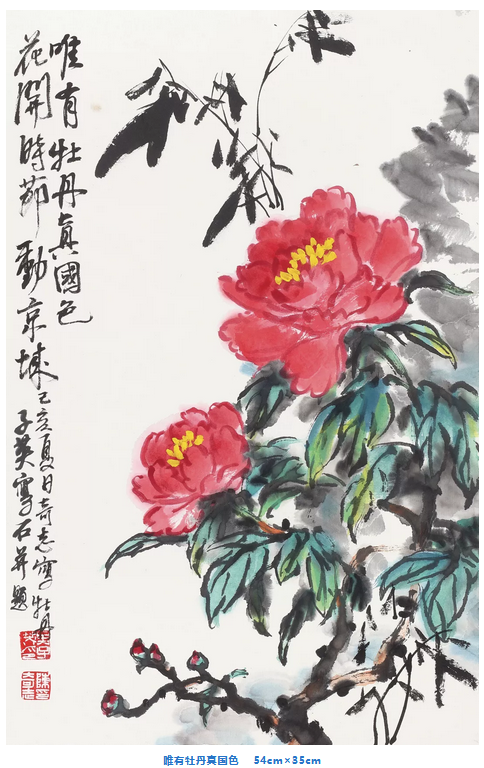 唯有牡丹真國色
花開時節動京城
己亥夏日奇志寫牡丹
子英寫石并題
唯有牡丹真国色 54cm×35cm